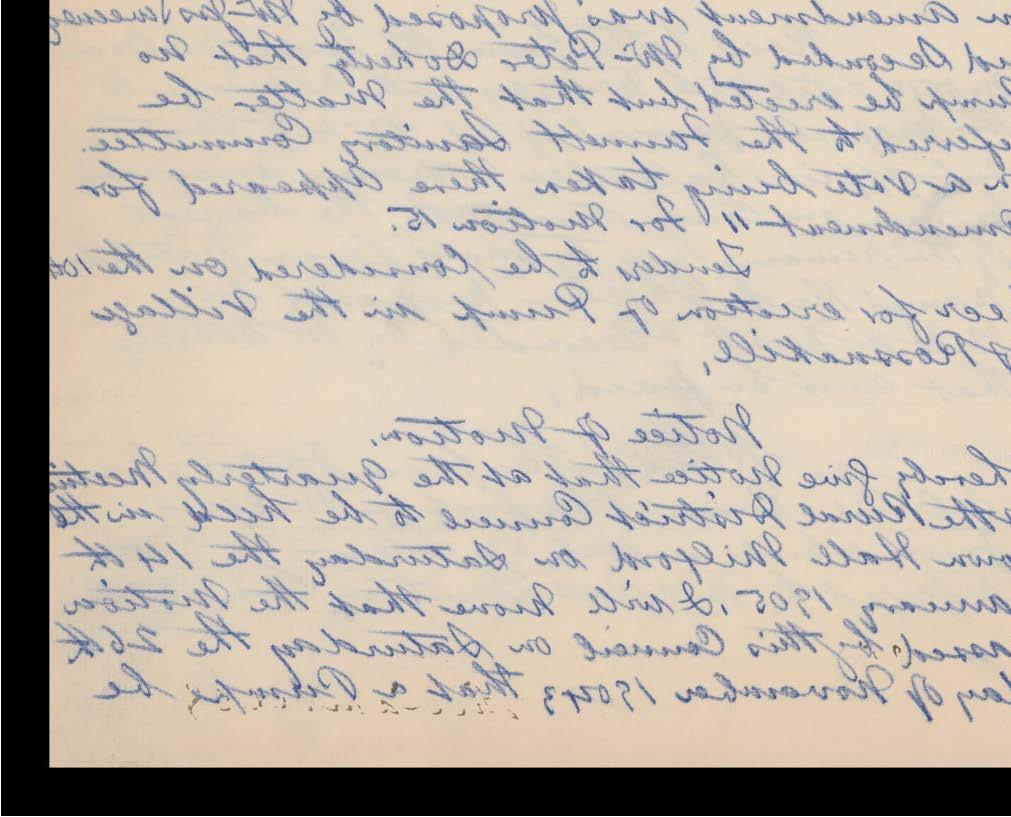 n amendment was proposed by Mr Jas Sweeney
nd Seconded by Mr Peter Doherty that no
ump be erected but that the Matter be
eferred to the Sanitory Committee.
n a Vote being taken there appeared for
mendment 11 for Motion 15.
Tenders to be Considered on the 10th
ecr for erection of Pump in the Village
f Rossnakill,
Notice of Motion.
hereby give Notice that at the Quarterly Meetin
the Rural District Council to be held in the
own Hall Milford on Saturday the 14th
anuary 1905, I will move that the Motion
assed by this Council on Saturday the 26th
ay of November 1904 that a Pump be